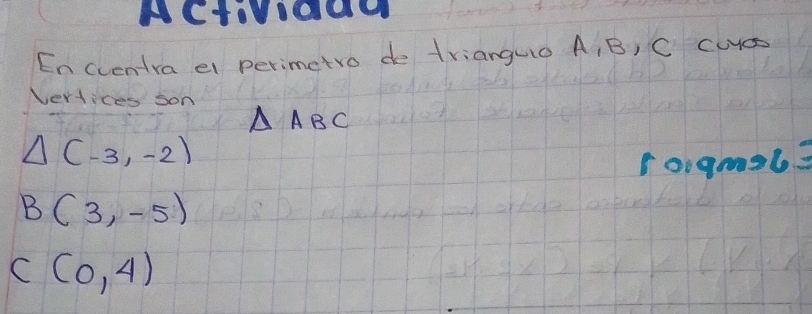 Actividad
Encuentra el perimetro de triangulo A, B, C cuyos
Vertices son
Δ ABC
A (-3, -2)
B (3, -5)
C (0, 4)